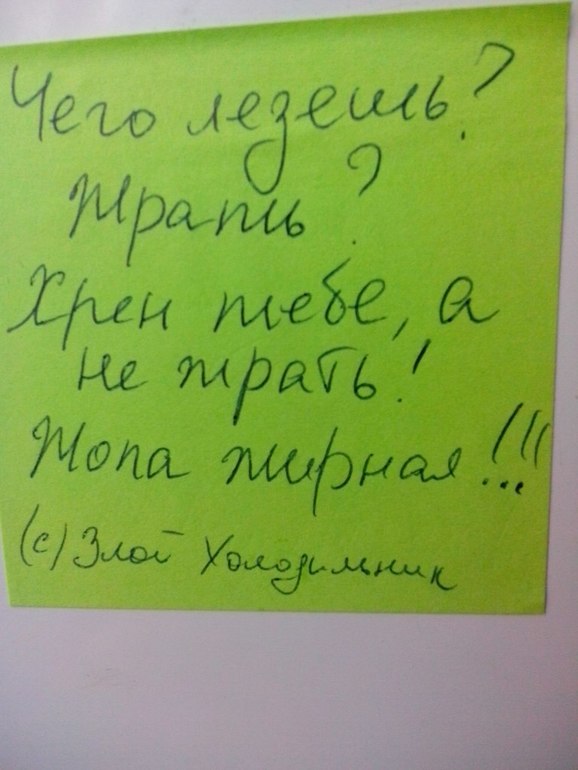 Чего лезешь?
Жрать?
Хрен тебе, а
не жрать!
Жопа жирная!!!
(с) Злой Холодильник